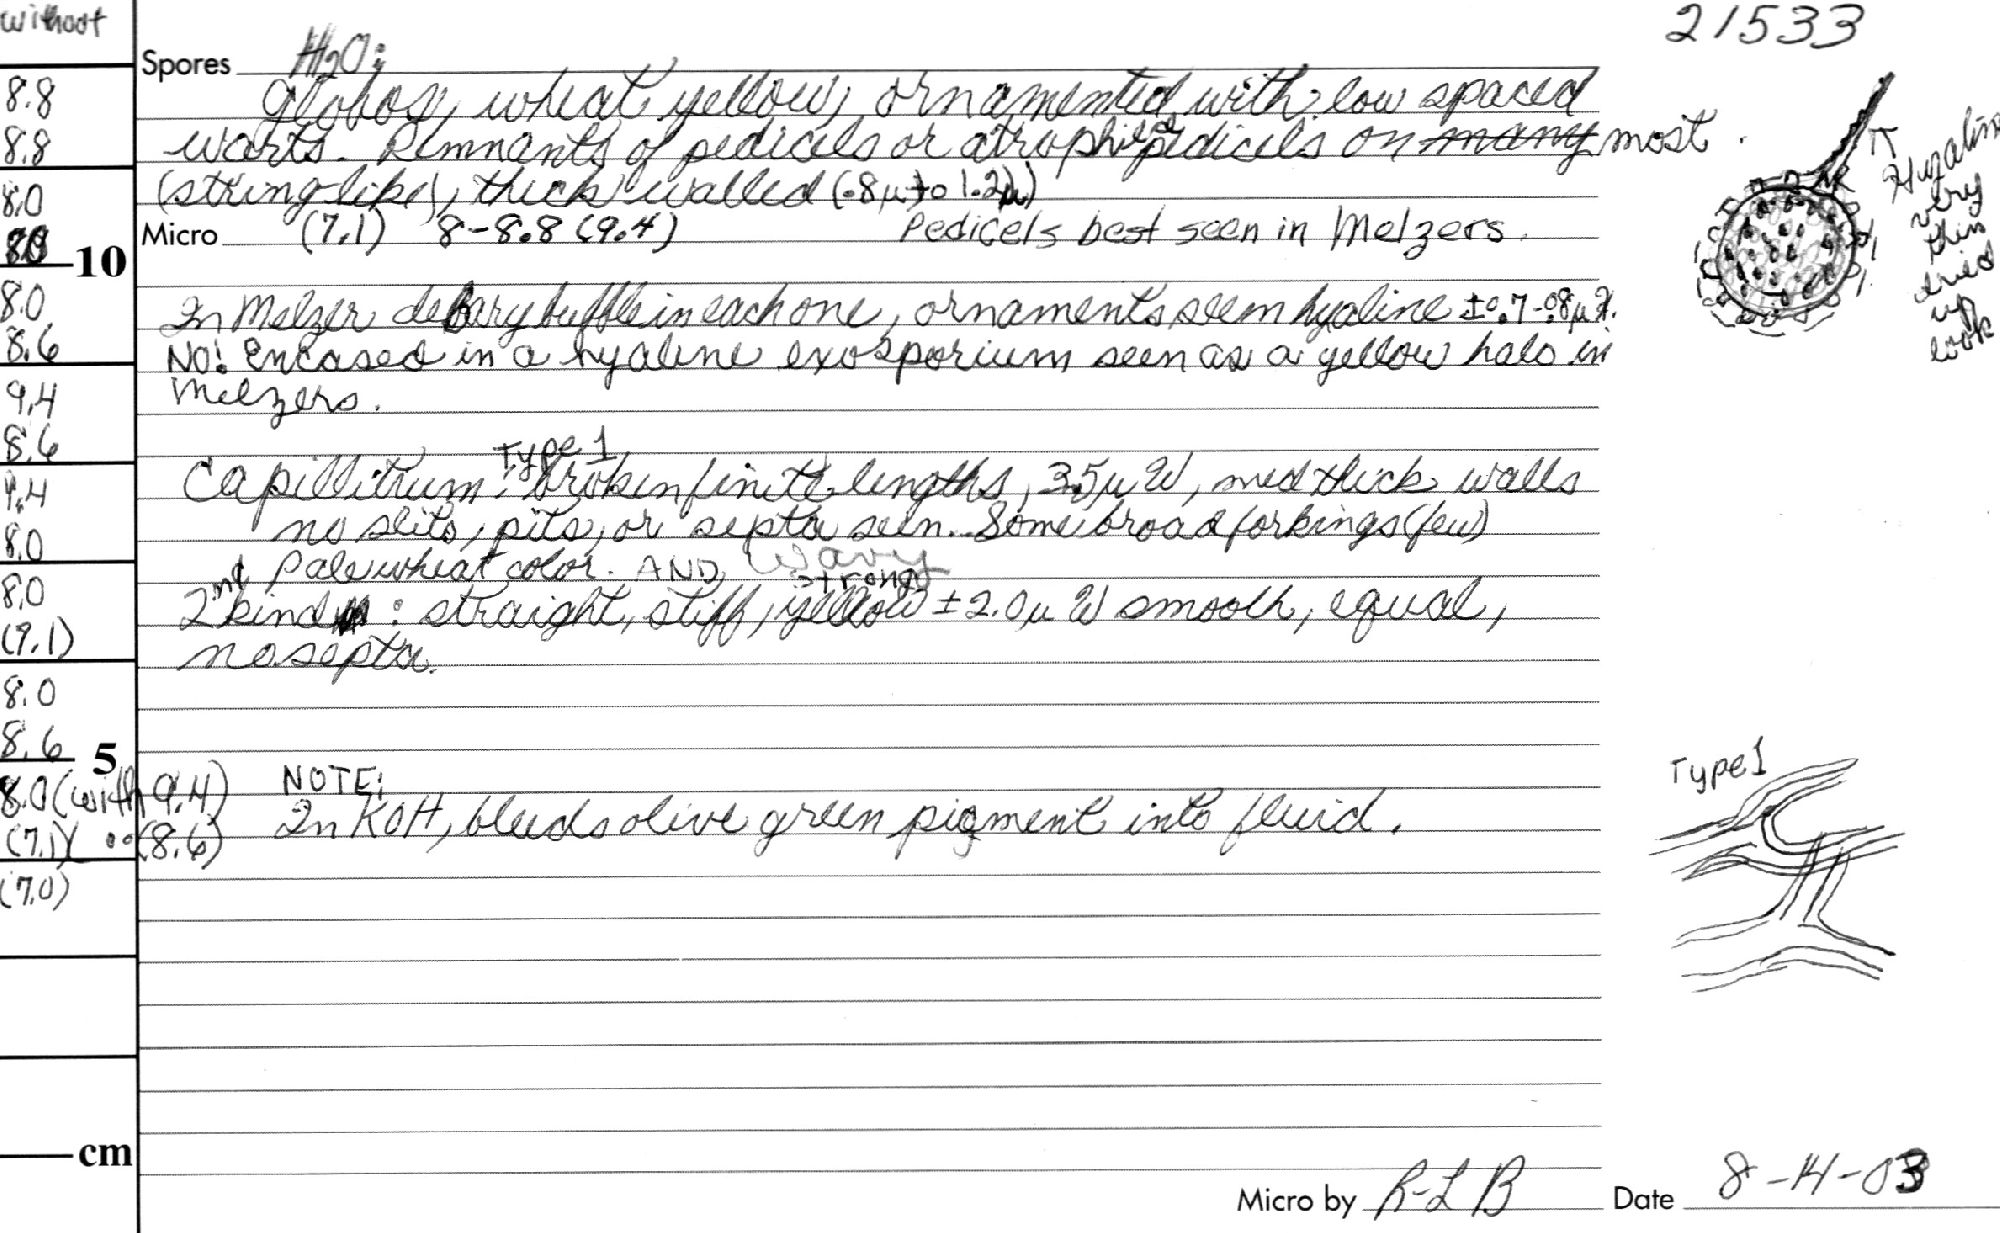 without
21533
Spores H2O:
globose, wheat yellow, ornamented with low spaced
warts. Remnants of pedicels or atrophied pedicels on many most.
(string-like), thick walled (.8µ to 1.2µ)
Micro (7.1) 8-8.8 (9.4) Pedicels best seen in Melzers.
In Melzer deBary bubble in each one, ornaments seem hyaline ±0.7-0.8µ
NO! Encased in a hyaline exosporium seen as a yellow halo in
Melzers.
Type 1
Capillitium: broken finite lengths, 3.5µ W, med thick walls
no slits, pits, or septa seen. Some broad forkings (few)
Pale wheat color. AND, Wavy
strong
2nd kind: straight, stiff, yellow ±2.0µ W smooth, equal,
no septa.
NOTE:
In KOH, bleeds olive green pigment into fluid.
8.8
8.8
8.0
10
8.0
8.6
9.4
8.6
9.4
8.0
8.0
(9.1)
8.0
8.6
5
8.0 (with 9.4)
(7.1) (8.6)
(7.0)
cm
Hyaline
very
thin
dried
up
look
Type 1
Micro by RLB Date 8-14-03